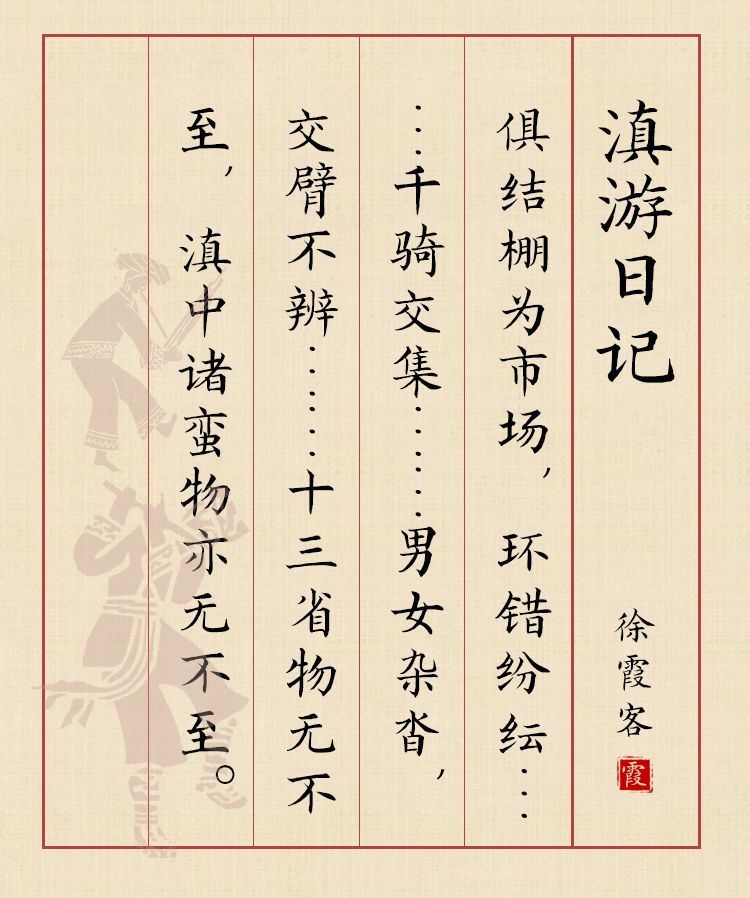 滇游日记
徐霞客
霞
俱结棚为市场，环错纷纭…
…千骑交集……男女杂沓，
交臂不辨……十三省物无不
至，滇中诸蛮物亦无不至。